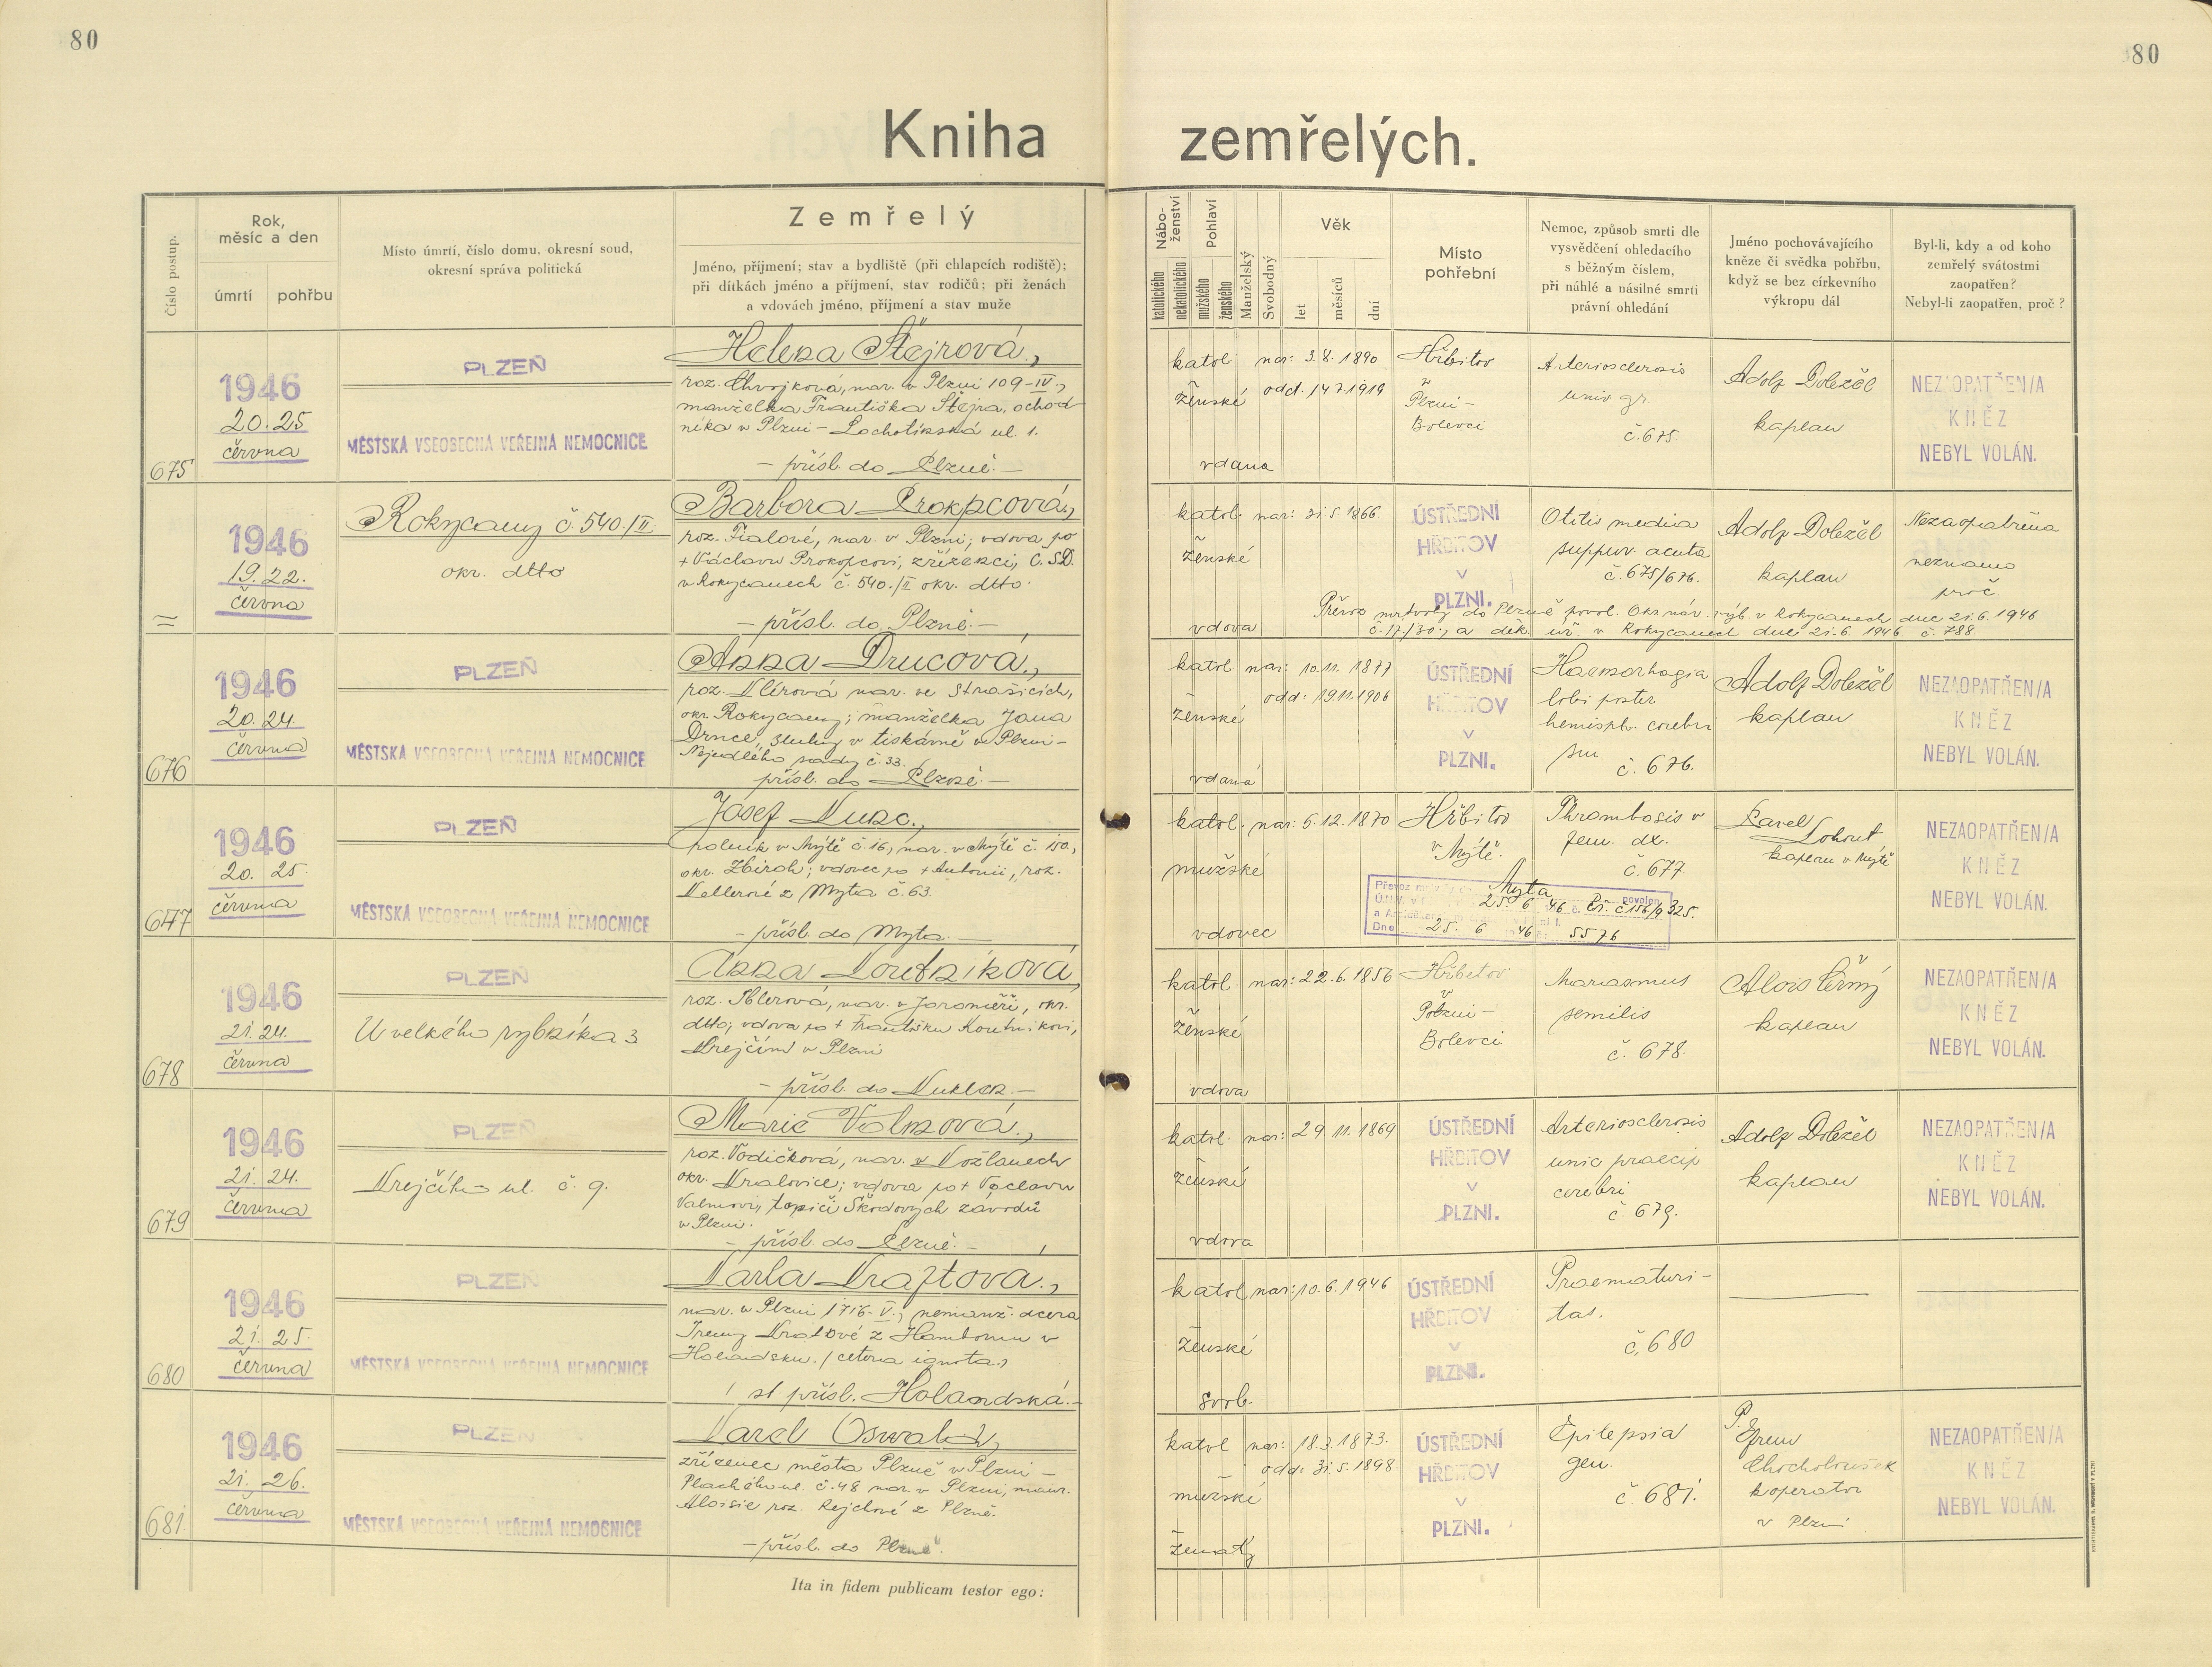 80
80
Kniha zemřelých.
Číslo postup.
Rok, měsíc a den
úmrtí
pohřbu
Místo úmrtí, číslo domu, okresní soud, okresní správa politická
Zemřelý
Jméno, příjmení; stav a bydliště (při chlapcích rodiště);
při dítkách jméno a příjmení, stav rodičů; při ženách
a vdovách jméno, příjmení a stav muže
Nábo-ženství
katolického
nekatolického
Pohlaví
mužského
ženského
Manželský
Svobodný
Věk
let
měsíců
dní
Místo pohřební
Nemoc, způsob smrti dle
vysvědčení ohledacího
s běžným číslem,
při náhlé a násilné smrti
právní ohledání
Jméno pochovávajícího
kněze či svědka pohřbu,
když se bez církevního
výkropu dál
Byl-li, kdy a od koho
zemřelý svátostmi
zaopatřen?
Nebyl-li zaopatřen, proč?
675
1946
20. 25
června
PLZEŇ
MĚSTSKÁ VŠEOBECNÁ VEŘEJNÁ NEMOCNICE
Helena Štejrová,
roz. Chvojková, nar. v Plzni 109-IV.,
manželka Františka Štejra, ochod-
níka v Plzni - Lochotínská ul. 1.
- přísl. do Plzně. -
katol
ženské
vdaná
nar: 3. 8. 1890
odd. 14 7. 1919
Hřbitov
v
Plzni-
Bolevci
Arteriosclerosis
univ gr.
č. 675.
Adolf Doležel
kaplan
NEZAOPATŘEN/A
KNĚZ
NEBYL VOLÁN.
=
1946
19. 22.
června
Rokycany č. 540./II
okr. dtto
Barbora Prokopcová,
roz. Fialové, nar. v Plzni; vdova po
+ Václavu Prokopcovi, zřízenci, Č.S.D.
v Rokycanech č. 540./II okr. dtto.
- přísl. do Plzně. -
katol.
ženské
vdova
nar: 31. 5. 1866.
ÚSTŘEDNÍ
HŘBITOV
V
PLZNI.
Otitis media
suppur. acuta
č. 675/676.
Adolf Doležel
kaplan
Nezaopatřena
neznámo
proč.
Převoz mrtvoly do Plzně povol. Okr. nár. výb. v Rokycanech dne 21. 6. 1946
a děk. úř. v Rokycanech dne 21. 6. 1946 č. 788
676
1946
20. 24.
června
PLZEŇ
MĚSTSKÁ VŠEOBECNÁ VEŘEJNÁ NEMOCNICE
Anna Drncová,
roz. Klírová nar. ve Strašicích,
okr. Rokycany; manželka Jana
Drnce, sluhy v tiskárně v Plzni-
Nejedlého sady č. 33.
přísl. do Plzně. -
katol
ženské
vdaná
nar: 10. 11. 1877
odd: 19. 11. 1906
ÚSTŘEDNÍ
HŘBITOV
V
PLZNI.
Haemorhagia
lobi poster
hemisph. cerebri
sin
č. 676.
Adolf Doležel
kaplan
NEZAOPATŘEN/A
KNĚZ
NEBYL VOLÁN.
677
1946
20. 25.
června
PLZEŇ
MĚSTSKÁ VŠEOBECNÁ VEŘEJNÁ NEMOCNICE
Josef Kunc.,
rolník v Mýtě č. 16, nar. v Mýtě č. 150,
okr. Zbiroh; vdovec po + Antonii, roz.
Kellerné z Mýta č. 63.
- přísl. do Mýta. -
katol.
mužské
vdovec
nar: 5. 12. 1870
Hřbitov
v Mýtě.
Thrombosis v
fem. dx.
č. 677.
Mýta
povolen
25. 6. 46
a
Dne 25. 6 46 5576
Karel
Lohout
kaplan v Mýtě
NEZAOPATŘEN/A
KNĚZ
NEBYL VOLÁN.
678
1946
21. 24.
června
PLZEŇ
U velkého rybníka 3
Anna Koutníková,
roz. Iblerová, nar. v Jaroměři, okr.
dtto, vdova po + Františku Koutníkovi,
krejčím v Plzni
- přísl. do Kuklen. -
katol.
ženské
vdova
nar: 22. 6. 1856
Hřbitov
v
Plzni-
Bolevci
Marasmus
senilis
č. 678.
Alois Černý
kaplan
NEZAOPATŘEN/A
KNĚZ
NEBYL VOLÁN.
679
1946
21. 24.
června
PLZEŇ
Krejčího ul. č. 9.
Marie Valnová,
roz. Vodičková, nar. v Kožlanech
okr. Kralovice; vdova po + Václavu
Valnovi, topiči Škodových závodů
v Plzni.
- přísl. do Plzně. -
katol.
ženské
vdova
nar: 29. 11. 1869
ÚSTŘEDNÍ
HŘBITOV
V
PLZNI.
Arteriosclerosis
univ praecip
cerebri
č. 679.
Adolf Doležel
kaplan
NEZAOPATŘEN/A
KNĚZ
NEBYL VOLÁN.
680
1946
21. 25.
června
PLZEŇ
MĚSTSKÁ VŠEOBECNÁ VEŘEJNÁ NEMOCNICE
Karla Kraftová.,
nar. v Plzni 1716-V.; nemanž. dcera
Ireny Kraftové z Hambornu v
Holandsku. /cetera ignota./
st přísl. Holandská. -
katol
ženské
svob.
nar: 10. 6. 1946
ÚSTŘEDNÍ
HŘBITOV
V
PLZNI.
Praematuri-
tas.
č. 680
681.
1946
21. 26.
června
PLZEŇ
MĚSTSKÁ VŠEOBECNÁ VEŘEJNÁ NEMOCNICE
Karel Oswald,
zřízenec města Plzně v Plzni -
Plachého ul. č. 48 nar. v Plzni, manž.
Aloisie roz. Rejchlové z Plzně.
- přísl. do Plzně.
katol
mužské
ženatý
nar: 18. 3. 1873.
odd: 31. 5. 1898.
ÚSTŘEDNÍ
HŘBITOV
V
PLZNI.
Epilepsia
gen.
č. 681.
P.
Efrem
Chocholoušek
kooperator
v Plzni
NEZAOPATŘEN/A
KNĚZ
NEBYL VOLÁN.
Ita in fidem publicam testor ego: